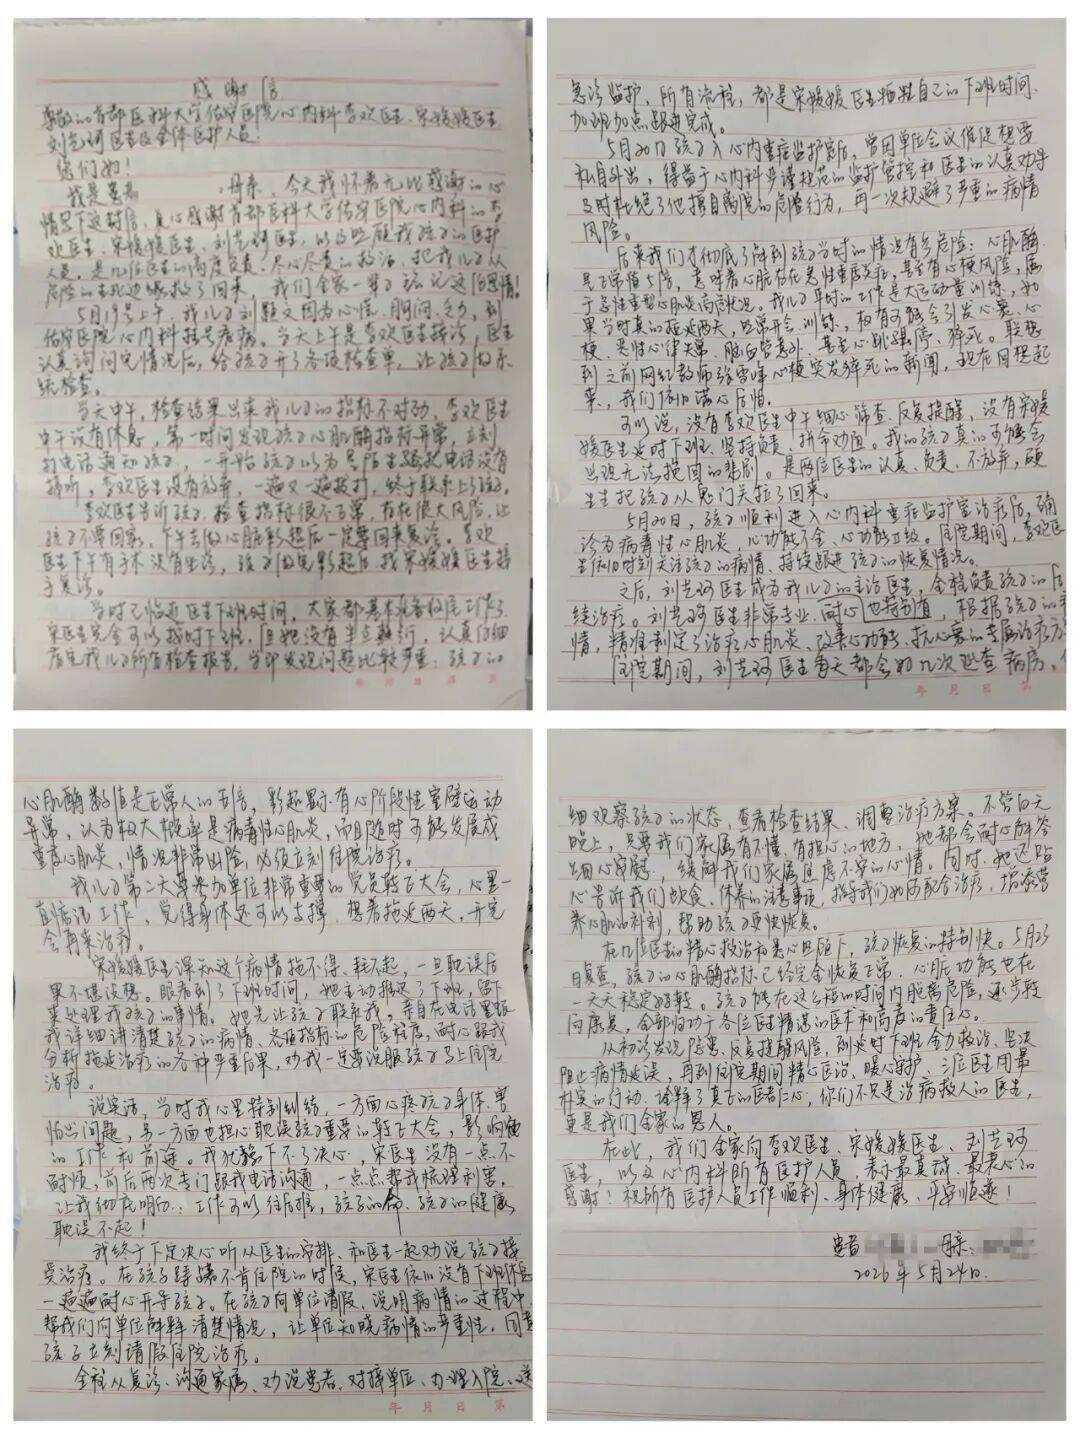 感谢信
尊敬的首都医科大学佑安医院心内科李欢医生、宋媛媛医生
刘芝珂医生及全体医护人员：
您们好！
我是患者 母亲，今天我怀着无比感谢的心
情写下这封信，真心感谢首都医科大学佑安医院心内科的李
欢医生、宋媛媛医生、刘芝珂医生，以及照顾我孩子的医护
人员，是几位医生的高度负责、尽心尽责的救治，把我儿子从
危险的生死边缘救了回来，我们全家一辈子铭记这份恩情！
5月19号上午，我儿子刘颖又因为心慌、胸闷、乏力，到
佑安医院心内科挂号看病。当天上午是李欢医生接诊，医生
认真询问完情况后，给孩子开了各项检查单，让孩子做系
统检查。
当天中午，检查结果出来我儿子的指标不对劲，李欢医生
中午没有休息，第一时间发现孩子心肌酶指标异常，立刻
打电话通知孩子，一开始孩子以为是陌生骚扰电话没有
接听，李欢医生没有放弃，一遍又一遍拨打，终于联系上了孩子。
李欢医生告诉孩子，检查指标很不正常，存在很大风险，让
孩子不要回家，下午去做心脏彩超后一定要回来复诊。李欢
医生下午有手术没有坐诊，孩子做完彩超后，找宋媛媛医生接
手复诊。
当时已临近医生下班时间，大家都基本准备收尾工作了
宋医生完全可以按时下班，但她没有半点敷衍，认真仔细
看完我儿子所有检查报告，当即发现问题比较严重：孩子的
心肌酶数值是正常人的五倍，彩超显示有心阶段性室壁运动
异常，认为极大概率是病毒性心肌炎，而且随时可能发展成
重症心肌炎，情况非常凶险，必须立刻住院治疗。
我儿子第二天要参加单位非常重要的党员转正大会，心里一
直惦记工作，觉得身体还可以支撑，想着拖延两天，开完
会再来治疗。
宋媛媛医生深知这个病情拖不得、耗不起，一旦耽误后
果不堪设想。眼看到了下班时间，她主动推迟了下班，留下
来处理我孩子的事情。她先让孩子联系我，亲自在电话里跟
我详细讲清楚孩子的病情、各项指标的危险程度，耐心跟我
分析拖延治疗的各种严重后果，劝我一定要说服孩子马上住院
治疗。
说实话，当时我心里特别纠结，一方面心疼孩子身体，害
怕出问题，另一方面也担心耽误孩子重要的转正大会，影响他
的工作和前途。我犹豫下不了决心，宋医生没有一点不
耐烦，前后两次专门跟我电话沟通，一点点帮我梳理利害，
让我彻底明白：工作可以往后推，孩子的命、孩子的健康
耽误不起！
我终于下定决心听从医生的安排，和医生一起劝说孩子接
受治疗。在孩子踌躇不肯住院的时候，宋医生依旧没有下班休息
一遍遍耐心开导孩子。在孩子向单位请假、说明病情的过程中，
帮我们向单位解释清楚情况，让单位知晓病情的严重性，同意
孩子立刻请假住院治疗。
全程从复诊、沟通家属、劝说患者、对接单位、办理入院、送
急诊监护，所有流程，都是宋媛媛医生牺牲自己的下班时间
加班加点跟进完成。
5月20日孩子入心内重症监护室后，曾因单位会议催促想要
私自外出，得益于心内科严谨规范的监护管控和医生的认真劝导
及时杜绝了他擅自离院的危险行为，再一次规避了严重的病情
风险。
后来我们才彻底了解到孩子当时的情况有多危险：心肌酶
是正常值5倍，意味着心脏存在急性重度炎症，甚至有心梗风险，属
于急性重型心肌炎高危状况。我儿子平时的工作是大运动量训练，如
果当时真的拖延两天，照常开会、训练，极有可能会引发心衰、心
梗、恶性心律失常、脑血管意外、甚至心跳骤停、猝死。联想
到之前网红教师张雪峰心梗突发猝死的新闻，现在回想起
来，我们依旧满心后怕。
可以说，没有李欢医生中午细心筛查、反复提醒，没有宋媛
媛医生延时下班、坚持负责、拼命劝留。我的孩子真的可能会
出现无法挽回的悲剧。是两位医生的认真、负责、不放弃，硬
生生把孩子从鬼门关拉了回来。
5月20日，孩子顺利进入心内科重症监护室治疗后，确
诊为病毒性心肌炎，心功能不全、心功能Ⅱ级。住院期间，李欢医
生依旧时刻关注孩子的病情、持续跟进孩子的恢复情况。
之后，刘芝珂医生成为我儿子的主治医生，全程负责孩子的后
续治疗。刘芝珂医生非常专业、耐心也特别有，根据孩子的病
情，精准制定了治疗心肌炎、改善心功能、抗心衰的专属治疗方
住院期间，刘芝珂医生每天都会好几次巡查病房。
细观察孩子的状态，查看检查结果、调整治疗方案。不管白天
晚上，只要我们家属有不懂、有担心的地方，她都会耐心解答
细心安慰，缓解我们家属焦虑不安的心情。同时，她还贴
心告诉我们饮食、休养的注意事项，指导我们如何配合治疗，增添营
养心肌的补剂，帮助孩子更快恢复。
在几位医生的精心救治和悉心照顾下，孩子恢复的特别快。5月23
日复查，孩子的心肌酶指标已经完全恢复正常，心脏功能也在
一天天稳定好转。孩子能在这么短的时间内脱离危险，逐步转
向康复，全部归功于各位医生精湛的医术和高度的责任心。
从初诊发现隐患、反复提醒风险，到延时下班全力救治、坚决
阻止病情延误，再到住院期间精心医治、暖心守护，三位医生用最
朴实的行动，诠释了真正的医者仁心，你们不只是治病救人的医生，
更是我们全家的恩人。
在此，我们全家向李欢医生、宋媛媛医生、刘芝珂
医生，以及心内科所有医护人员，表示最真诚、最衷心的
感谢！祝所有医护人员工作顺利、身体健康、平安顺遂！
患者 母亲：
2026年5月24日.
年 月 日 第
年 月 日 第
年 月 日 第